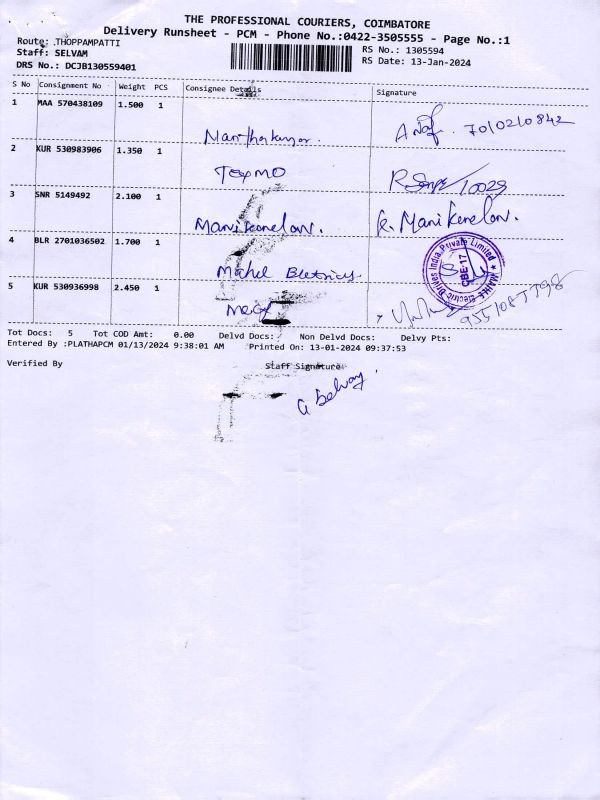 THE PROFESSIONAL COURIERS, COIMBATORE
Delivery Runsheet - PCM - Phone No.:0422-3505555 - Page No.:1
Route: .THOPPAMPATTI
RS No.: 1305594
Staff: SELVAM
RS Date: 13-Jan-2024
DRS No.: DCJB130559401
S No Consignment No Weight PCS Consignee Details Signature
1 MAA 570438109 1.500 1
7010210842
2 KUR 530983906 1.350 1
Texmo
10029
3 SNR 5149492 2.100 1
Manikanelan. K. Manikenelan.
4 BLR 2701036502 1.700 1
Electric Drives India Private Limited
CBE-17
5 KUR 530936998 2.450 1
Tot Docs: 5 Tot COD Amt: 0.00 Delvd Docs: Non Delvd Docs: Delvy Pts:
Entered By :PLATHAPCM 01/13/2024 9:38:01 AM Printed On: 13-01-2024 09:37:53
Verified By Staff Signature
G Selvam